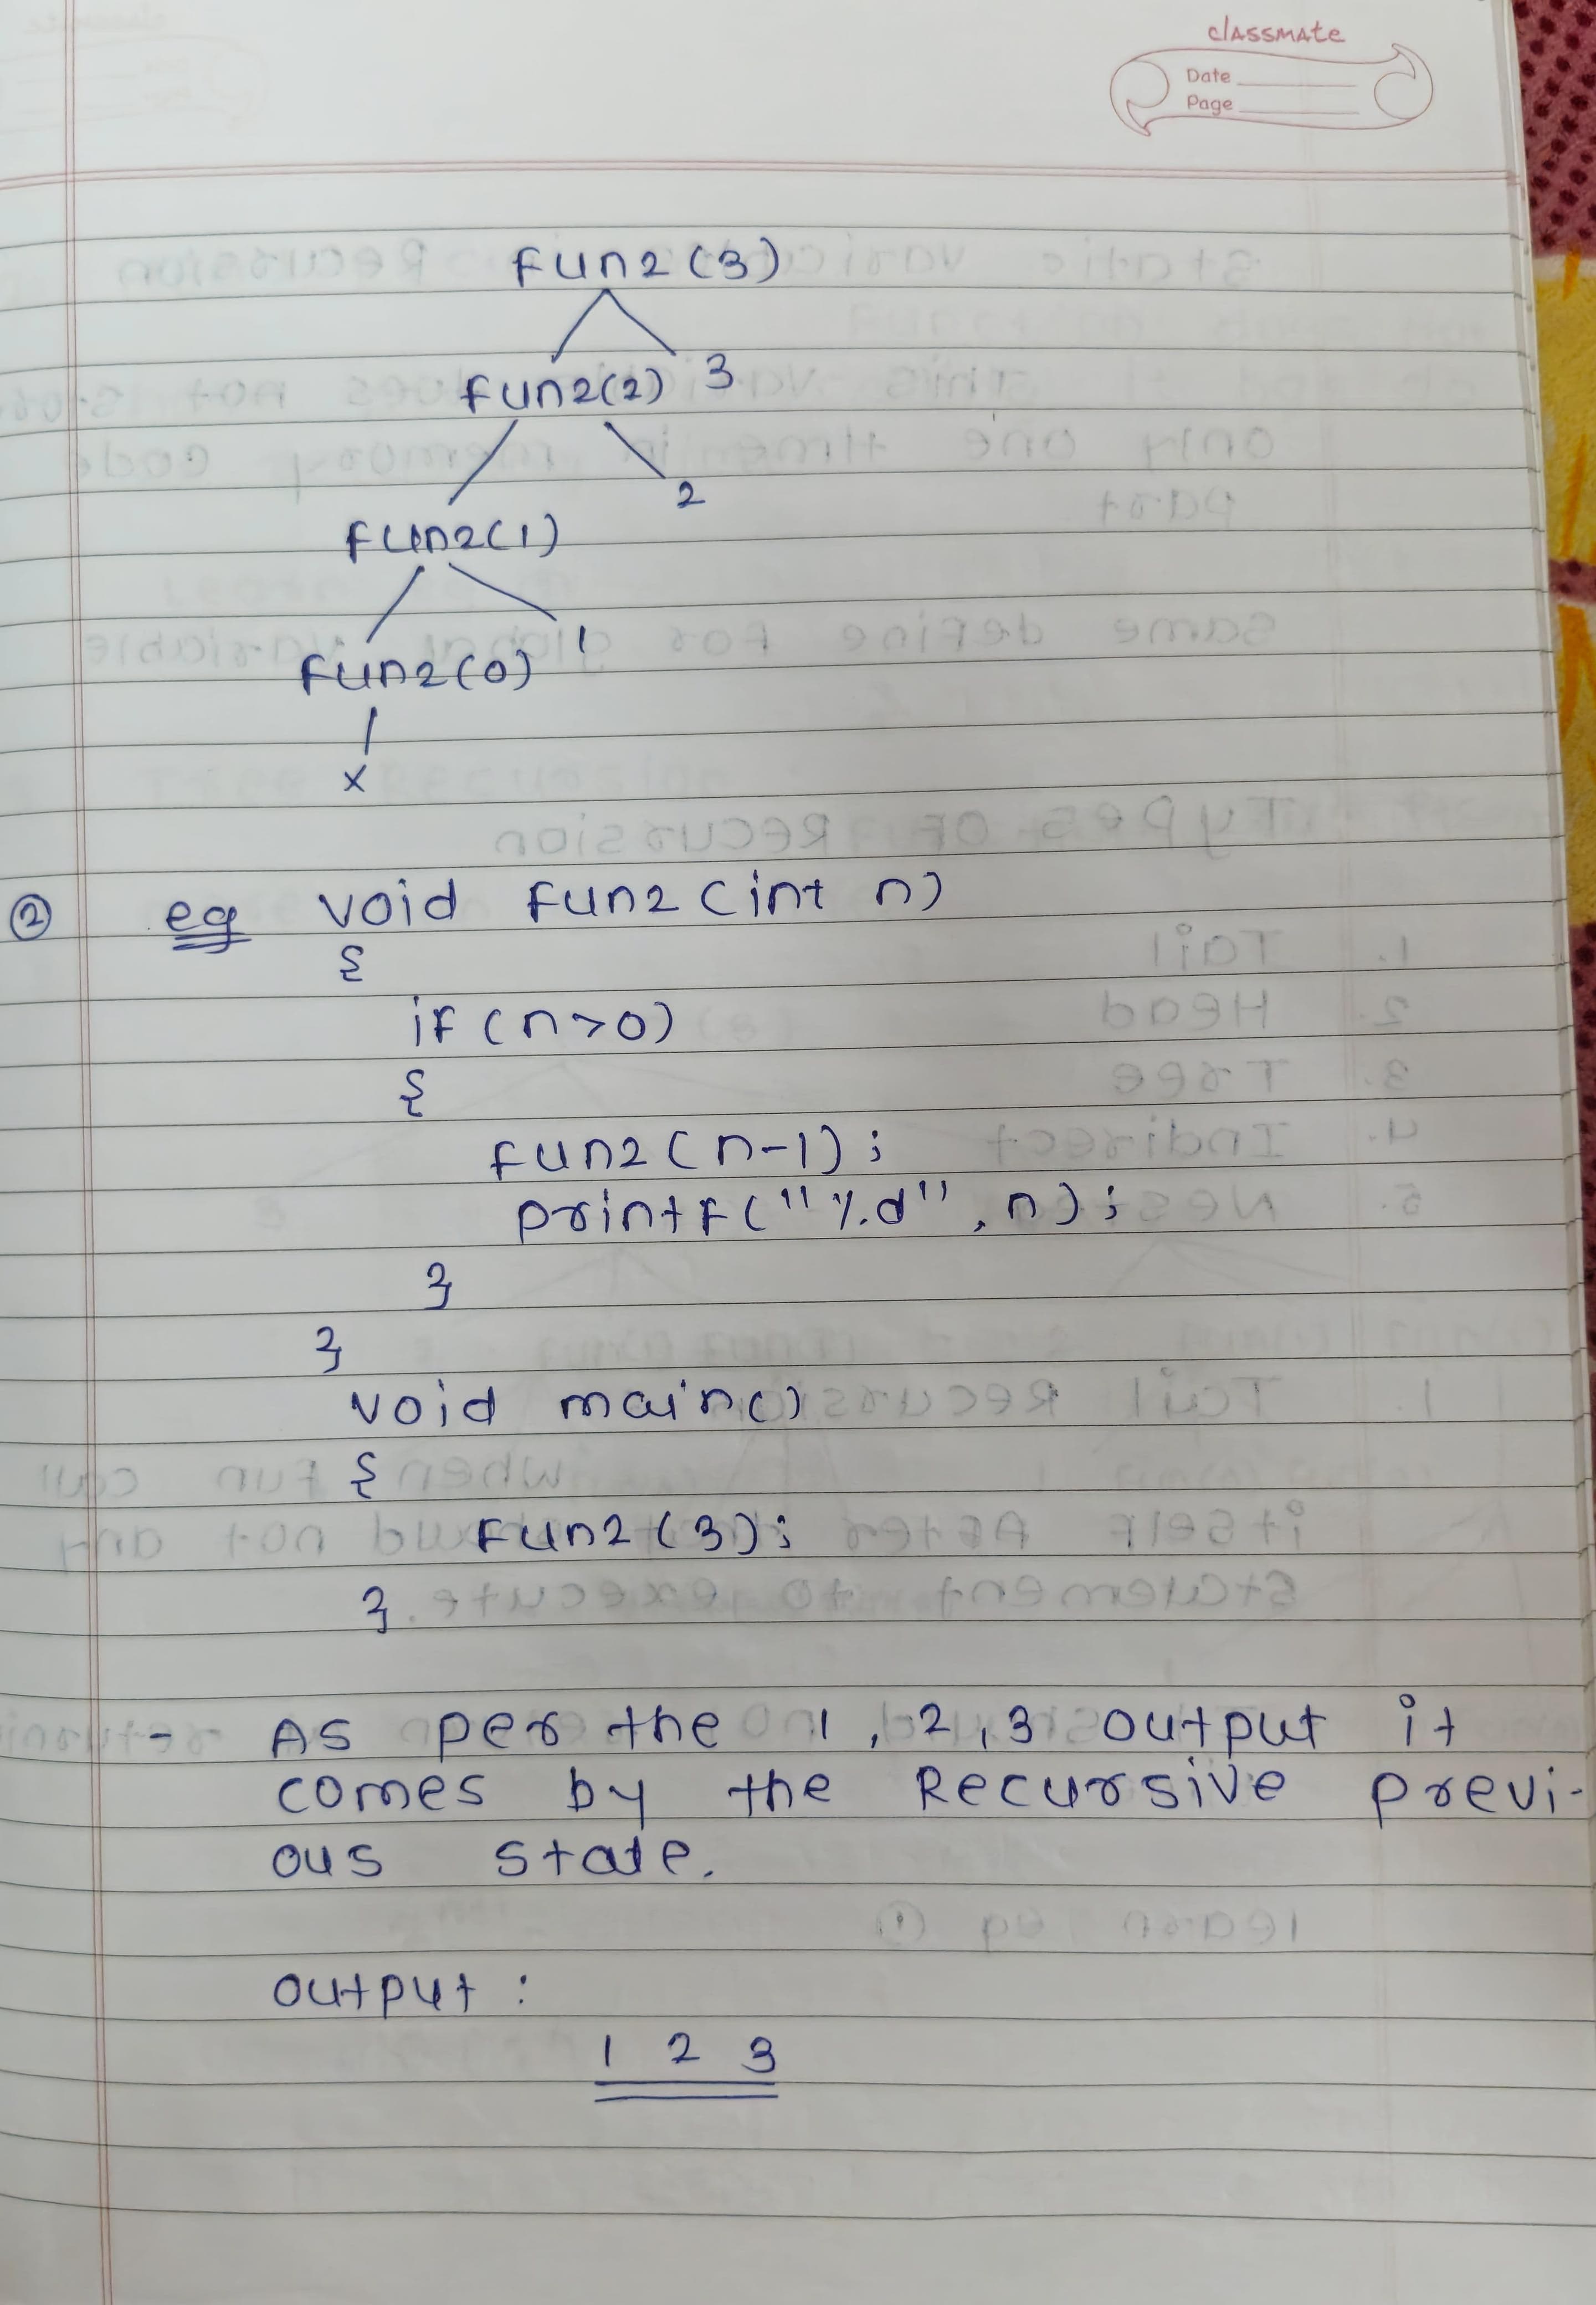 classmate
Date
Page
fun2(3)
fun2(2) 3
2
fun2(1)
1
fun2(0)
x
② eg void fun2(int n)
{
if(n>0)
{
fun2(n-1);
printf("%d", n);
}
}
void main()
{
fun2(3);
}
- As per the 1, 2, 3 output it
comes by the Recursive previ-
ous state.
output :
1 2 3